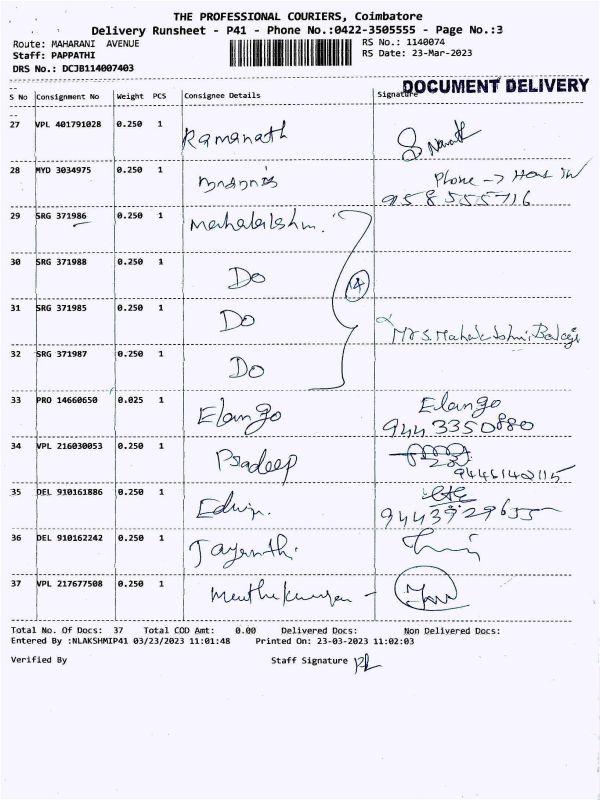 THE PROFESSIONAL COURIERS, Coimbatore
Delivery Runsheet - P41 - Phone No.:0422-3505555 - Page No.:3
Route: MAHARANI AVENUE RS No.: 1140074
Staff: PAPPATHI RS Date: 23-Mar-2023
DRS No.: DCJB114007403
DOCUMENT DELIVERY
S No Consignment No Weight PCS Consignee Details Signature
27 VPL 401791028 0.250 1 Ramanath
28 MYD 3034975 0.250 1 Phone →
958555716
29 SRG 371986 0.250 1
30 SRG 371988 0.250 1 Do
4
31 SRG 371985 0.250 1 Do
Mrs. Mahalakshmi, Balaji
32 SRG 371987 0.250 1 Do
33 PRO 14660650 0.025 1 Elango Elango
9443350880
34 VPL 216030053 0.250 1 Pradeep
35 DEL 910161886 0.250 1 Edwin.
9443929655
36 DEL 910162242 0.250 1 Jayanthi.
37 VPL 217677508 0.250 1
Total No. Of Docs: 37 Total COD Amt: 0.00 Delivered Docs: Non Delivered Docs:
Entered By :NLAKSHMIP41 03/23/2023 11:01:48 Printed On: 23-03-2023 11:02:03
Verified By Staff Signature